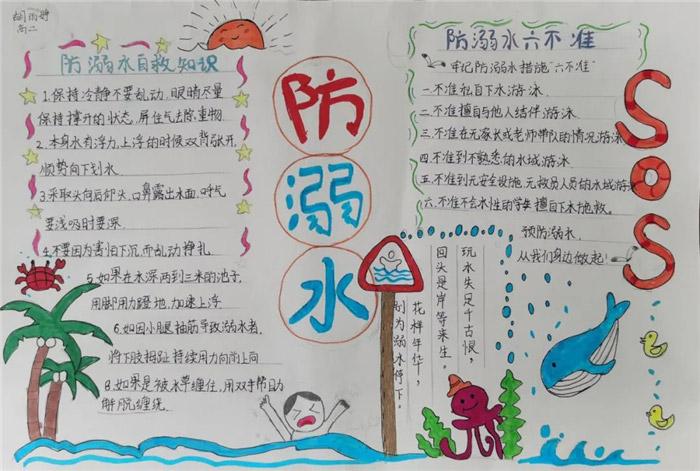 胡雨婷
高二
防溺水自救知识
1.保持冷静不要乱动,眼睛尽量
保持撑开的状态,屏住气去除重物.
2.本身水有浮力,上浮的时候双臂张开,
顺势向下划水.
3.采取头向后仰头,口鼻露出水面.呼气
要浅吸时要深.
4.不要因为害怕下沉而乱动挣扎.
5.如果在水深两到三米的池子,
用脚用力蹬地,加速上浮.
6.如因小腿抽筋导致溺水者,
将下肢拇趾持续用力向前上向
8.如果是被水草缠住,用双手帮自助
解脱缠绕.
防
溺
水
防溺水六不准
牢记防溺水措施“六不准”
一.不准私自下水游泳.
二.不准擅自与他人结伴游泳.
三.不准在无家长或老师带队的情况游泳
四.不准到不熟悉的水域游泳.
五.不准到无安全设施,无救员人员的水域游泳
六.不准不会水性动的学生擅自下水施救.
预防溺水,
从我们身边做起!
SOS
玩水失足千古恨,
回头是岸等来生.
花样年华,
别为溺水停下.